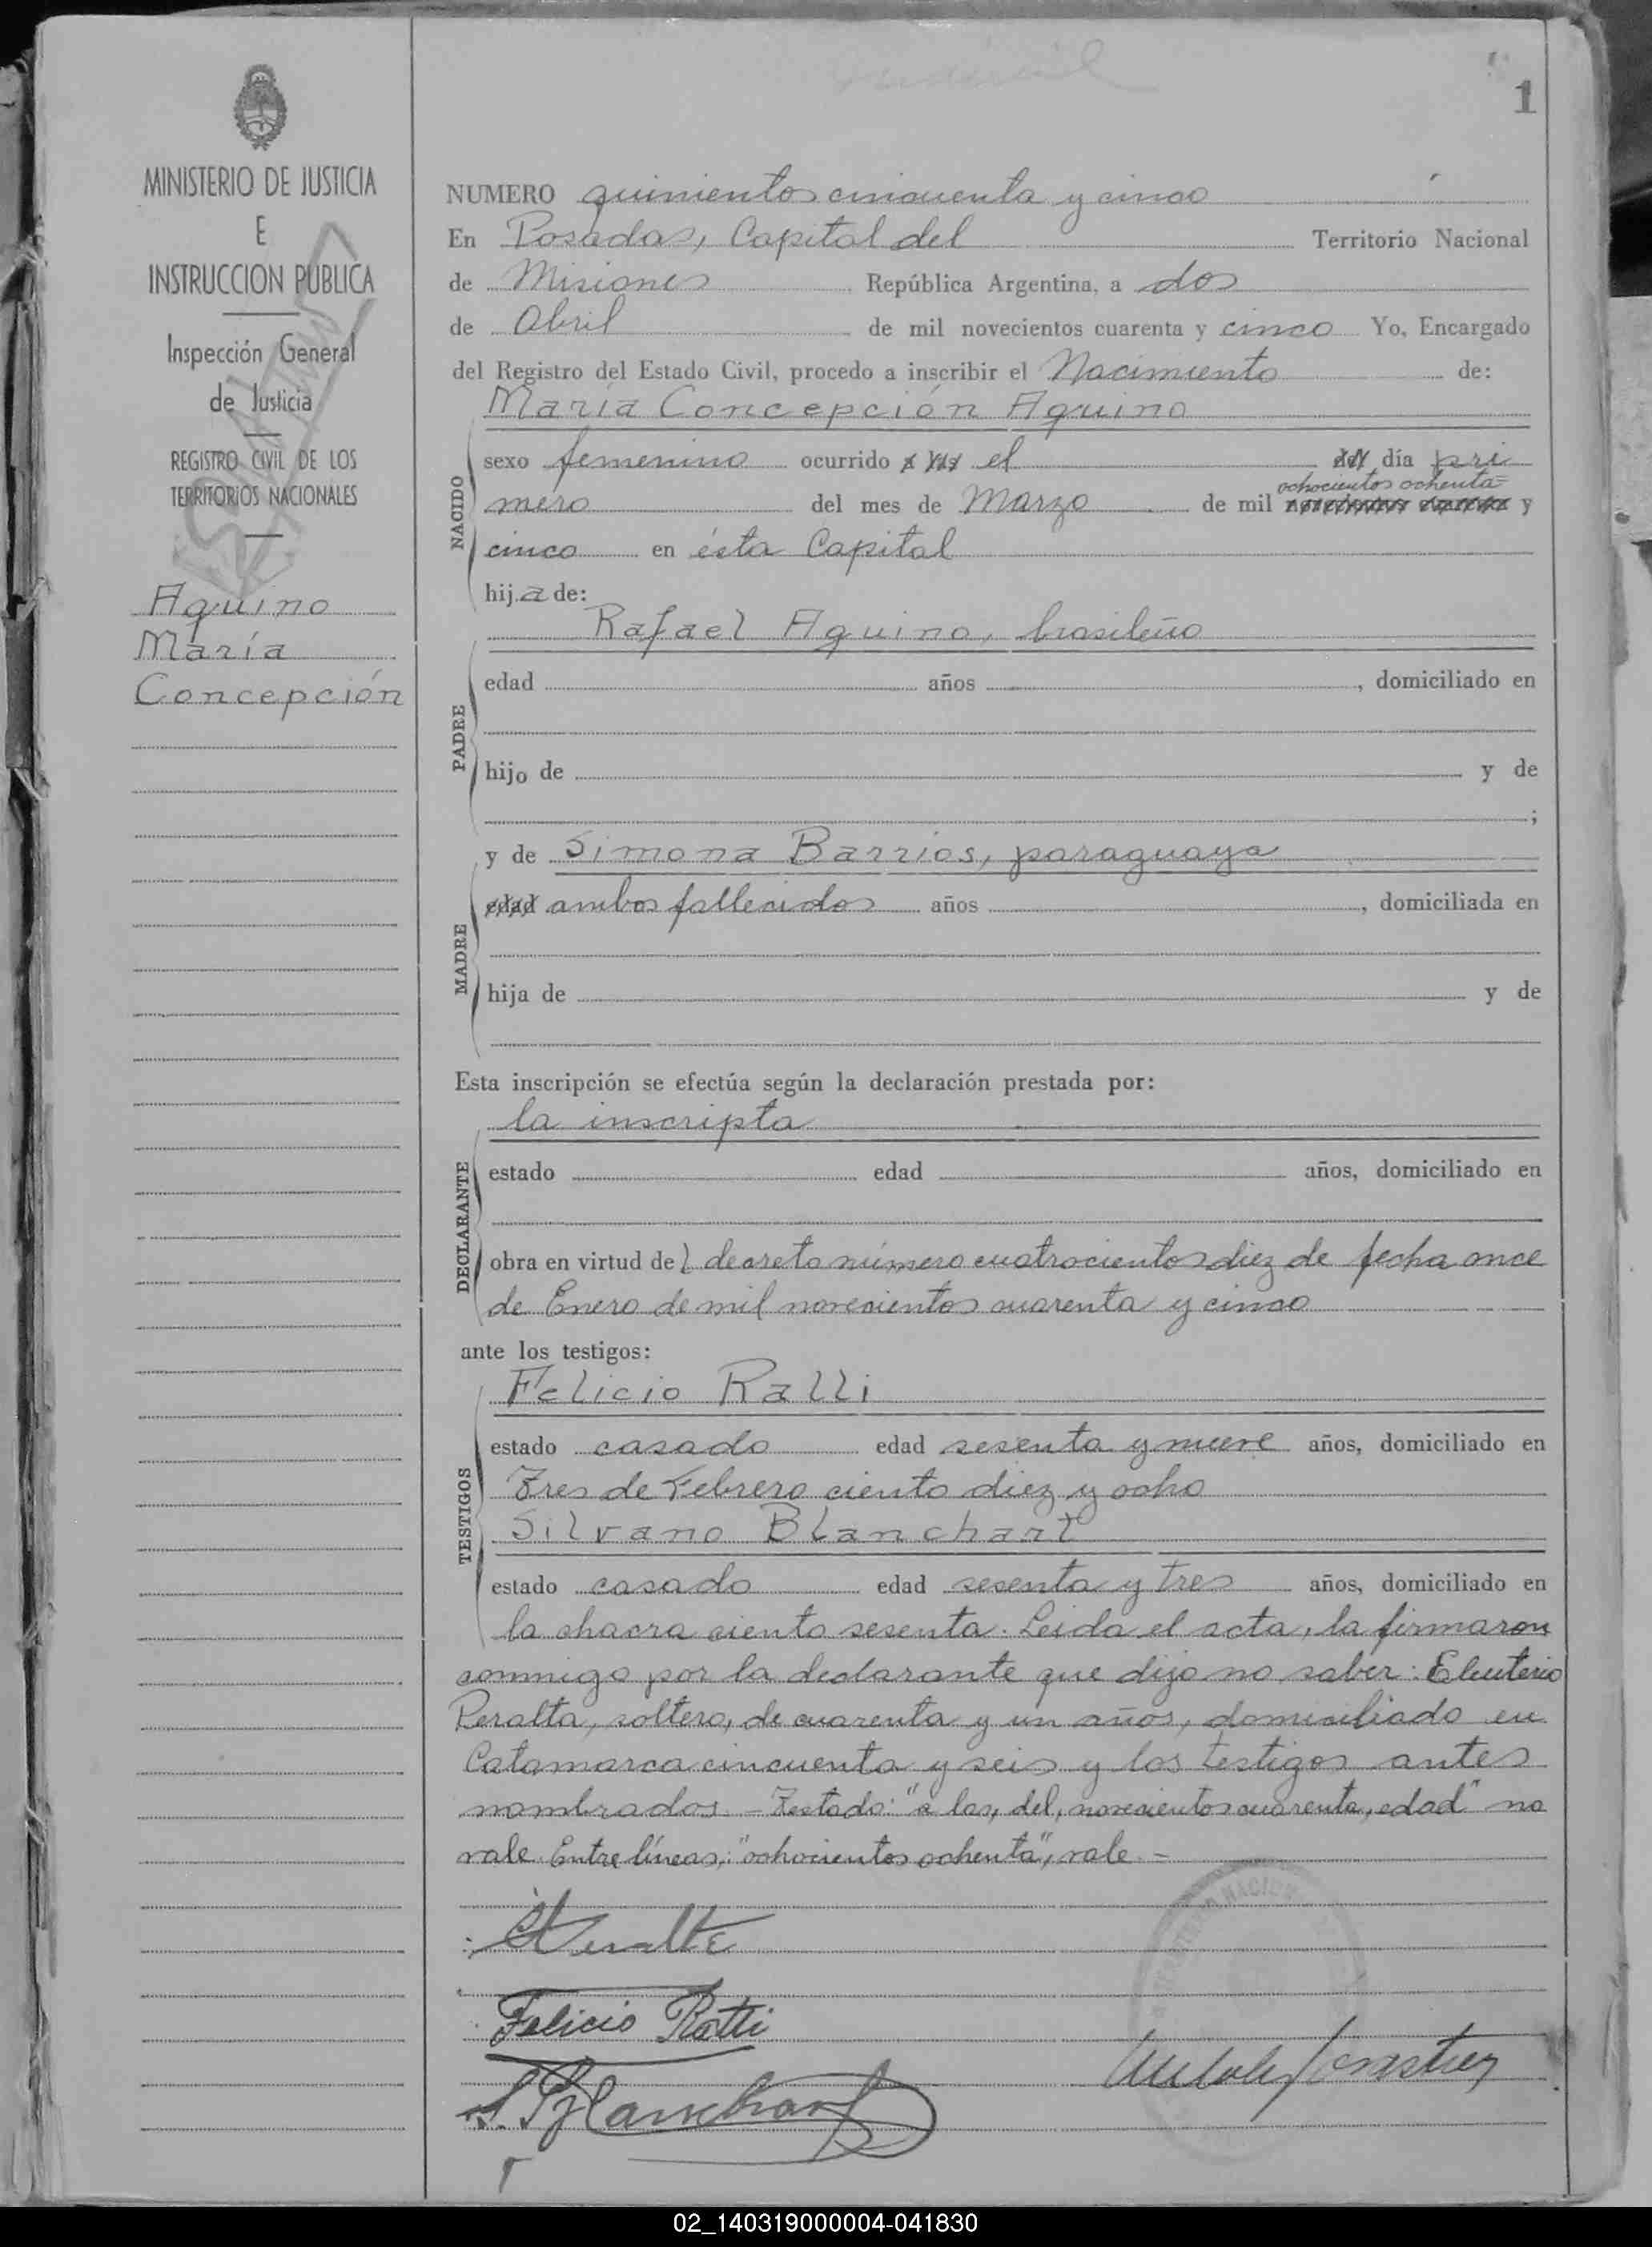 1
MINISTERIO DE JUSTICIA
E
INSTRUCCION PUBLICA
Inspección General
de Justicia
REGISTRO CIVIL DE LOS
TERRITORIOS NACIONALES
Aquino
María
Concepción
NUMERO quinientos cincuenta y cinco
En Posadas, Capital del Territorio Nacional
de Misiones República Argentina, a dos
de Abril de mil novecientos cuarenta y cinco Yo, Encargado
del Registro del Estado Civil, procedo a inscribir el Nacimiento de:
María Concepción Aquino
NACIDO
sexo femenino ocurrido a las el del día pri
ochocientos ochenta=
mero del mes de Marzo de mil novecientos cuarenta y
cinco en ésta Capital
hija de:
Rafael Aquino, brasileño
PADRE
edad años , domiciliado en
hijo de y de
;
y de Simona Barrios, paraguaya
MADRE
edad ambos fallecidos años , domiciliada en
hija de y de
Esta inscripción se efectúa según la declaración prestada por:
la inscripta
DECLARANTE
estado edad años, domiciliado en
obra en virtud del decreto número cuatrocientos diez de fecha once
de Enero de mil novecientos cuarenta y cinco
ante los testigos:
Felicio Ratti
TESTIGOS
estado casado edad sesenta y nueve años, domiciliado en
Tres de Febrero ciento diez y ocho
Silvano Blanchart
estado casado edad sesenta y tres años, domiciliado en
la chacra ciento sesenta. Leida el acta, la firmaron
conmigo por la declarante que dijo no saber: Eleuterio
Peralta, soltero, de cuarenta y un años, domiciliado en
Catamarca cincuenta y seis y los testigos antes
nombrados. - Testado: "a las, del, novecientos cuarenta, edad" no
vale. Entre líneas: "ochocientos ochenta", vale. -
E Peralta
Felicio Ratti
S. Blanchart
02_140319000004-041830